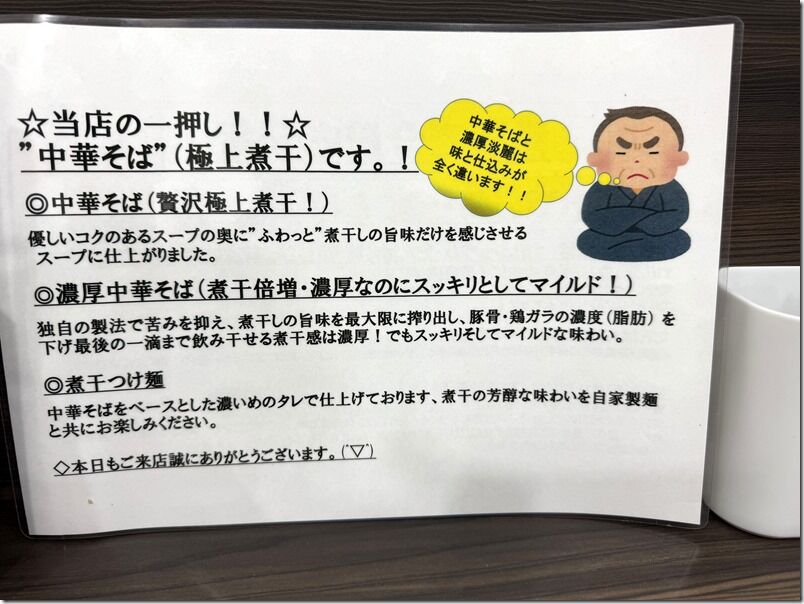 ☆当店の一押し！！☆
”中華そば”（極上煮干）です。！
中華そばと
濃厚淡麗は
味と仕込みが
全く違います！！
◎中華そば（贅沢極上煮干！）
優しいコクのあるスープの奥に”ふわっと”煮干しの旨味だけを感じさせる
スープに仕上がりました。
◎濃厚中華そば（煮干倍増・濃厚なのにスッキリとしてマイルド！）
独自の製法で苦みを抑え、煮干しの旨味を最大限に搾り出し、豚骨・鶏ガラの濃度（脂肪）を
下げ最後の一滴まで飲み干せる煮干感は濃厚！でもスッキリそしてマイルドな味わい。
◎煮干つけ麺
中華そばをベースとした濃いめのタレで仕上げております、煮干の芳醇な味わいを自家製麺
と共にお楽しみください。
◇本日もご来店誠にありがとうございます。(ﾞ▽ﾞ)